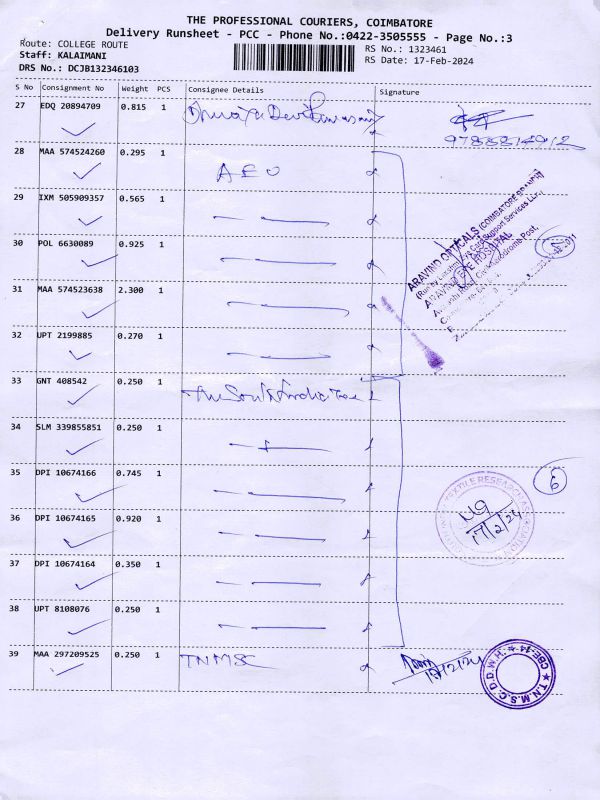 THE PROFESSIONAL COURIERS, COIMBATORE
Delivery Runsheet - PCC - Phone No.:0422-3505555 - Page No.:3
Route: COLLEGE ROUTE
RS No.: 1323461
Staff: KALAIMANI
RS Date: 17-Feb-2024
DRS No.: DCJB132346103
S No Consignment No Weight PCS Consignee Details Signature
27 EDQ 20894709 0.815 1
28 MAA 574524260 0.295 1 AEO
29 IXM 505909357 0.565 1
30 POL 6630089 0.925 1
31 MAA 574523638 2.300 1
32 UPT 2199885 0.270 1
ARAVIND OPTICALS (COIMBATORE BRANCH)
ARAVIND EYE HOSPITAL
33 GNT 408542 0.250 1 The South India
34 SLM 339855851 0.250 1
35 DPI 10674166 0.745 1
6
36 DPI 10674165 0.920 1
TEXTILE RESEARCH ASSOCIATION
17/2/24
37 DPI 10674164 0.350 1
38 UPT 8108076 0.250 1
39 MAA 297209525 0.250 1 TNMSC
17/2/24
T.N.M.S.C. D.W.H. CBE-14